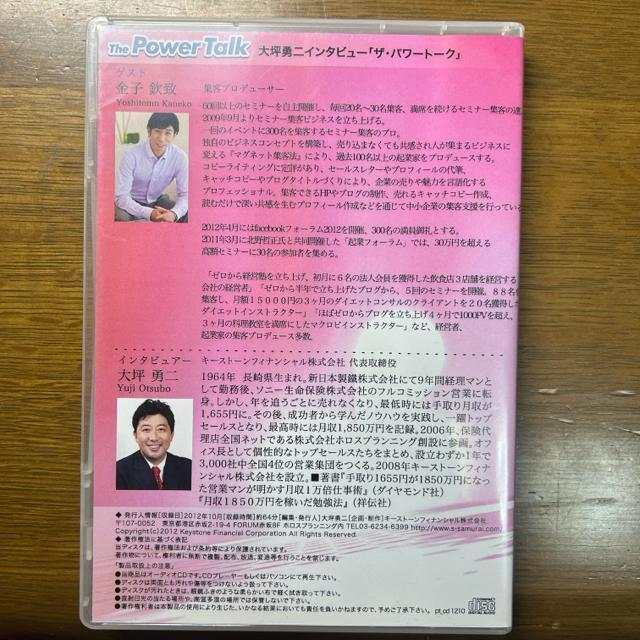 The Power Talk 大坪勇二インタビュー「ザ・パワートーク」
ゲスト
金子 欽致
Yoshitomo Kaneko
集客プロデューサー
60回以上のセミナーを自主開催し、毎回20名〜30名集客、満席を続けるセミナー集客の達
2009年9月よりセミナー集客ビジネスを立ち上げる。
一回のイベントに300名を集客するセミナー集客のプロ。
独自のビジネスコンセプトを構築し、売り込まなくても共感され人が集まるビジネスに
変える『マグネット集客法』により、過去100名以上の起業家をプロデュースする。
コピーライティングに定評があり、セールスレターやプロフィールの代筆、
キャッチコピーやブログタイトルづくりにより、企業の売りや魅力を言語化する
プロフェッショナル。集客できるHPやブログの制作、売れるキャッチコピー作成、
読むだけで深い共感を生むプロフィール作成などを通じて中小企業の集客支援を行っている
2012年4月にはfacebookフォーラム2012を開催、300名の満員御礼とする。
2011年3月に北野哲正氏と共同開催した「起業フォーラム」では、30万円を超える
高額セミナーに30名の参加者を集める。
「ゼロから経営塾を立ち上げ、初月に6名の法人会員を獲得した飲食店3店舗を経営する
会社の経営者」「ゼロから半年で立ち上げたブログから、5回のセミナーを開催。88名を
集客し、月額15000円の3ヶ月のダイエットコンサルのクライアントを20名獲得した
ダイエットインストラクター」「ほぼゼロからブログを立ち上げ4ヶ月で1000PVを超え、
3ヶ月の料理教室を満席にしたマクロビインストラクター」など、経営者、
起業家の集客プロデュース多数。
インタビュアー
大坪 勇二
Yuji Otsubo
キーストーンフィナンシャル株式会社 代表取締役
1964年 長崎県生まれ。新日本製鐵株式会社にて9年間経理マンと
して勤務後、ソニー生命保険株式会社のフルコミッション営業に転
身。しかし、年を追うごとに売れなくなり、最低時には手取り月収が
1,655円に。その後、成功者から学んだノウハウを実践し、一躍トップ
セールスとなり、最高時には月収1,850万円を記録。2006年、保険代
理店全国ネットである株式会社ホロスプランニング創設に参画。オフ
ィス長として個性的なトップセールスたちをまとめ、設立わずか1年で
3,000社中全国4位の営業集団をつくる。2008年キーストーンフィナ
ンシャル株式会社を設立。■著書『手取り1655円が1850万円になっ
た営業マンが明かす月収1万倍仕事術』(ダイヤモンド社)
『月収1850万円を稼いだ勉強法』(祥伝社)
◆ 発行人情報[収録日]2012年10月[収録時間]約64分[編集・発行人]大坪勇二[企画・制作]キーストーンフィナンシャル株式会社
〒107-0052 東京都港区赤坂2-19-4 FORUM赤坂8F ホロスプランニング内 TEL03-6234-6399 http://www.s-samurai.com/
Copyright(c)2012 Keystone Financial Corporation All Rights Reserved.
◆ 著作権法に基づく表示
当ディスクは、著作権法および条約等により保護されています。
著作物について、権利者に無断で複製、配布、放送、変造等を行うことを禁じます。
「製品取扱上の注意」
●当商品はオーディオCDです。CDプレーヤーもしくはパソコンにて再生下さい。
●ディスクは両面とも汚れや傷等をつけないよう扱って下さい。
●ディスクが汚れたときは、眼鏡ふきのような柔らかい布で軽く拭き取って下さい。
●直射日光の当たる場所や、高温多湿の場所では保管しないで下さい。
●著作権利者は本製品の使用により生じた、いかなる結果においても責任を負いかねますので、予めご了承下さい。
pt_cd 1210